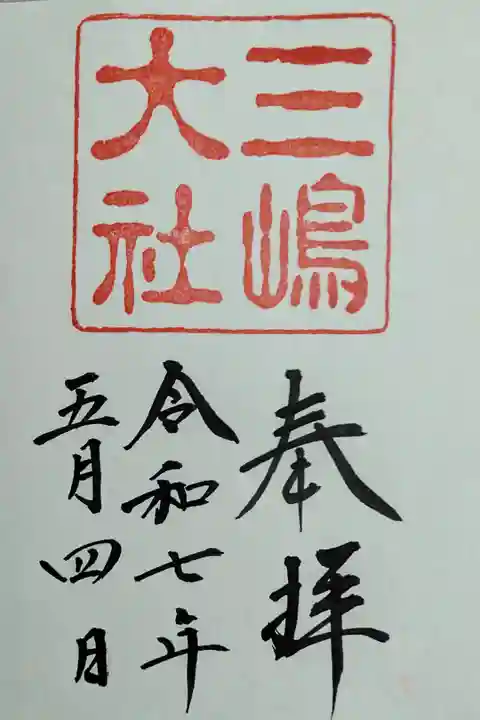 三嶋
大社
奉拝
令和七年
五月四日